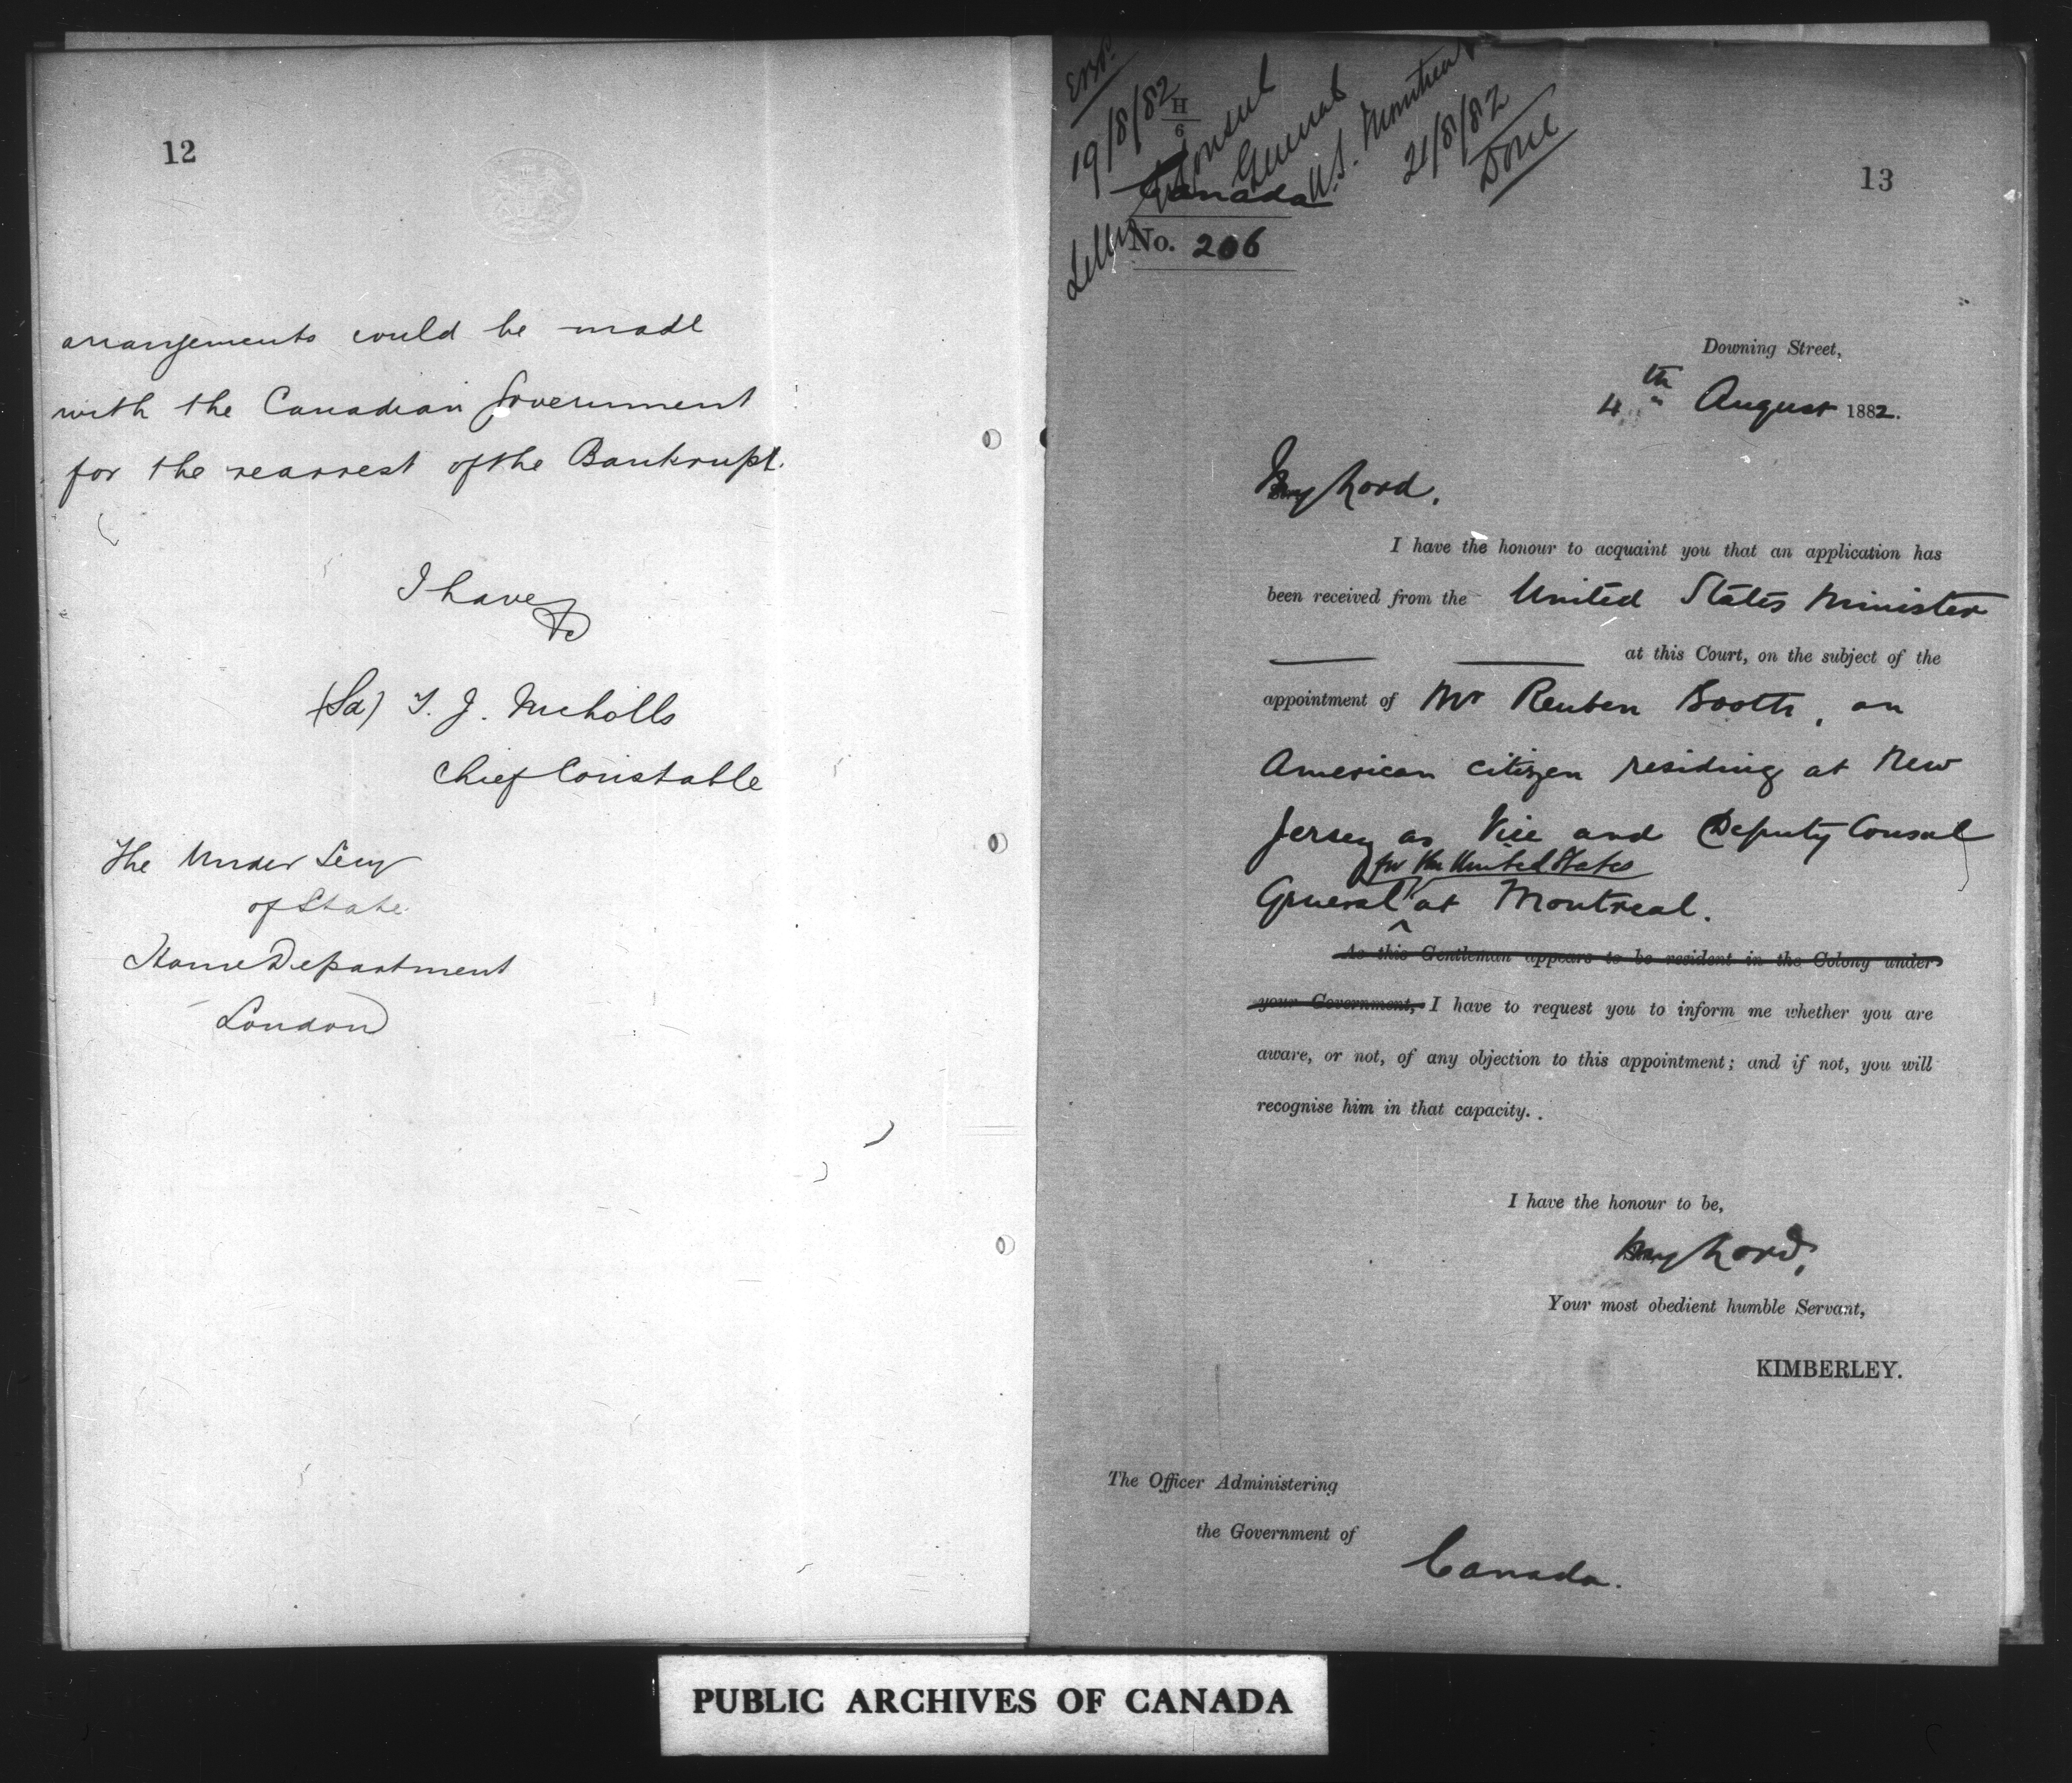 12
arrangements could be made
with the Canadian Government
for the rearrest of the Bankrupt.
I have
&c
(Sd) T. J. Nicholls
Chief Constable
The Under Secy
of State
Home Department
London
19/8/82
H
6
Consul
General
U.S. Montreal
21/8/82
Done
13
Canada
No. 206
Downing Street,
4th August 1882.
My Lord,
I have the honour to acquaint you that an application has
been received from the United States Minister
at this Court, on the subject of the
appointment of Mr Reuben Booth, an
American citizen residing at New
Jersey as Vice and Deputy Consul
for the United States
General at Montreal.
As this Gentleman appears to be resident in the Colony under
your Government, I have to request you to inform me whether you are
aware, or not, of any objection to this appointment; and if not, you will
recognise him in that capacity.
I have the honour to be,
My Lord,
Your most obedient humble Servant,
KIMBERLEY.
The Officer Administering
the Government of
Canada.
PUBLIC ARCHIVES OF CANADA